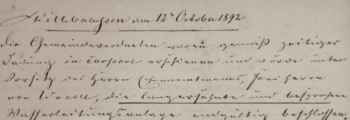 Willebadessen am 12ᵗ October 1892
Die Gemeindeverordneten waren gemäß zeitiger
Ladung in corpore erschienen und wurde unter
Vorsitz des Herrn Ehrenamtmanns, Freiherrn
von Wrede, die langersehnte und besprochene
Wasserleitungsanlage endgültig beschlossen